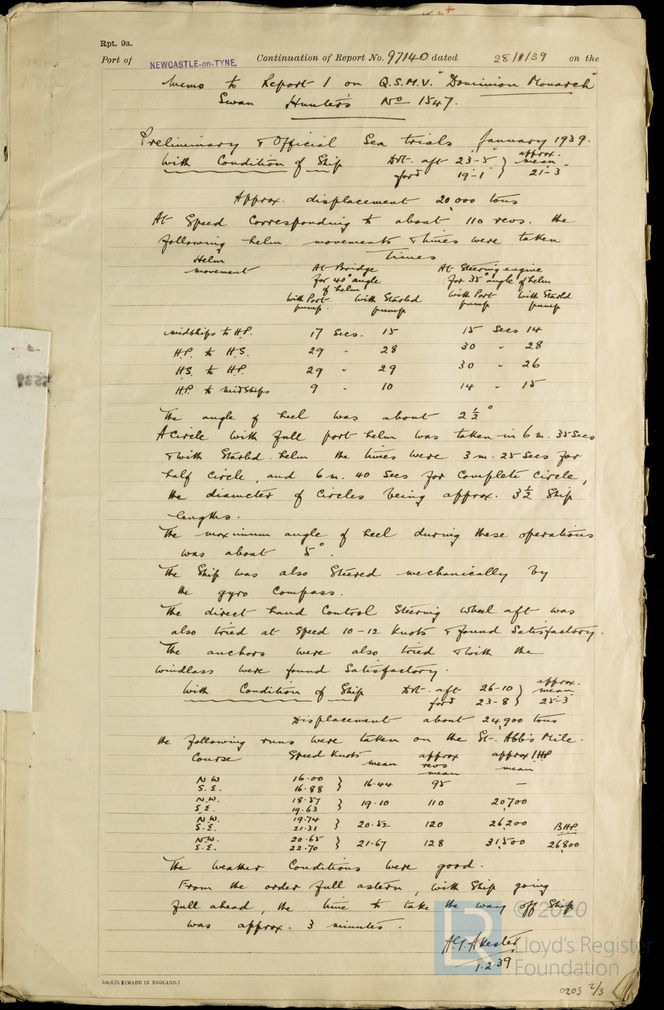 Rpt. 9a.
Port of NEWCASTLE-ON-TYNE. Continuation of Report No. 97140 dated 28/1/39 on the
Memo to Report 1 on Q.S.M.V. "Dominion Monarch"
Swan Hunter's No 1547.
Preliminary & Official Sea trials January 1939.
With Condition of Ship Dft. aft 23-5 } approx. mean
ford 19-1 } 21-3
Approx. displacement 20,000 tons
At Speed Corresponding to about 110 revs. the
following helm movements & times were taken
Helm movement Times
At Bridge for 40° angle of helm At Steering engine for 35° angle of helm
With Port pump With Starbd pump With Port pump With Starbd pump
Midships to H.P. 17 Secs. 15 15 Secs 14
H.P. to H.S. 29 " 28 30 " 28
H.S. to H.P. 29 " 29 30 " 26
H.P. to midships 9 " 10 14 " 15
The angle of heel was about 2½°
A Circle with full port helm was taken in 6 m. 35 Secs
& with Starbd. helm the times were 3 m. 25 Secs for
half circle, and 6 m. 40 Secs for complete circle,
the diameter of circles being approx. 3½ Ship
lengths.
The maximum angle of heel during these operations
was about 5°.
The Ship was also Steered mechanically by
the gyro Compass.
The direct hand Control Steering wheel aft was
also tried at Speed 10-12 Knots & found Satisfactory.
The anchors were also tried & with the
windlass were found Satisfactory.
With Condition of Ship Dft. aft 26-10 } approx. mean
ford 23-8 } 25-3
Displacement about 24,900 tons
The following runs were taken on the St. Abb's Mile.
Course Speed Knots mean approx revs mean approx IHP mean
N.W. 16.00
S.E. 16.88 } 16.44 95 —
N.W. 18.57
S.E. 19.63 } 19.10 110 20,700
N.W. 19.74
S.E. 21.31 } 20.52 120 26,200 BHP
N.W. 20.65
S.E. 22.70 } 21.67 128 31,500 26,800
The weather Conditions were good.
From the order full astern, with Ship going
full ahead, the time to take the way off Ship
was approx. 3 minutes.
1.2.39
© 2020
Lloyd's Register
Foundation
(MADE IN ENGLAND.)
0205 2/3